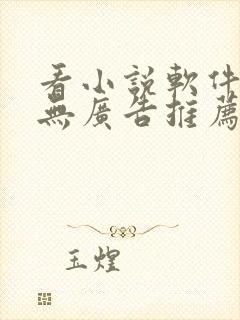 看小説軟件
無廣告推薦
玉煌